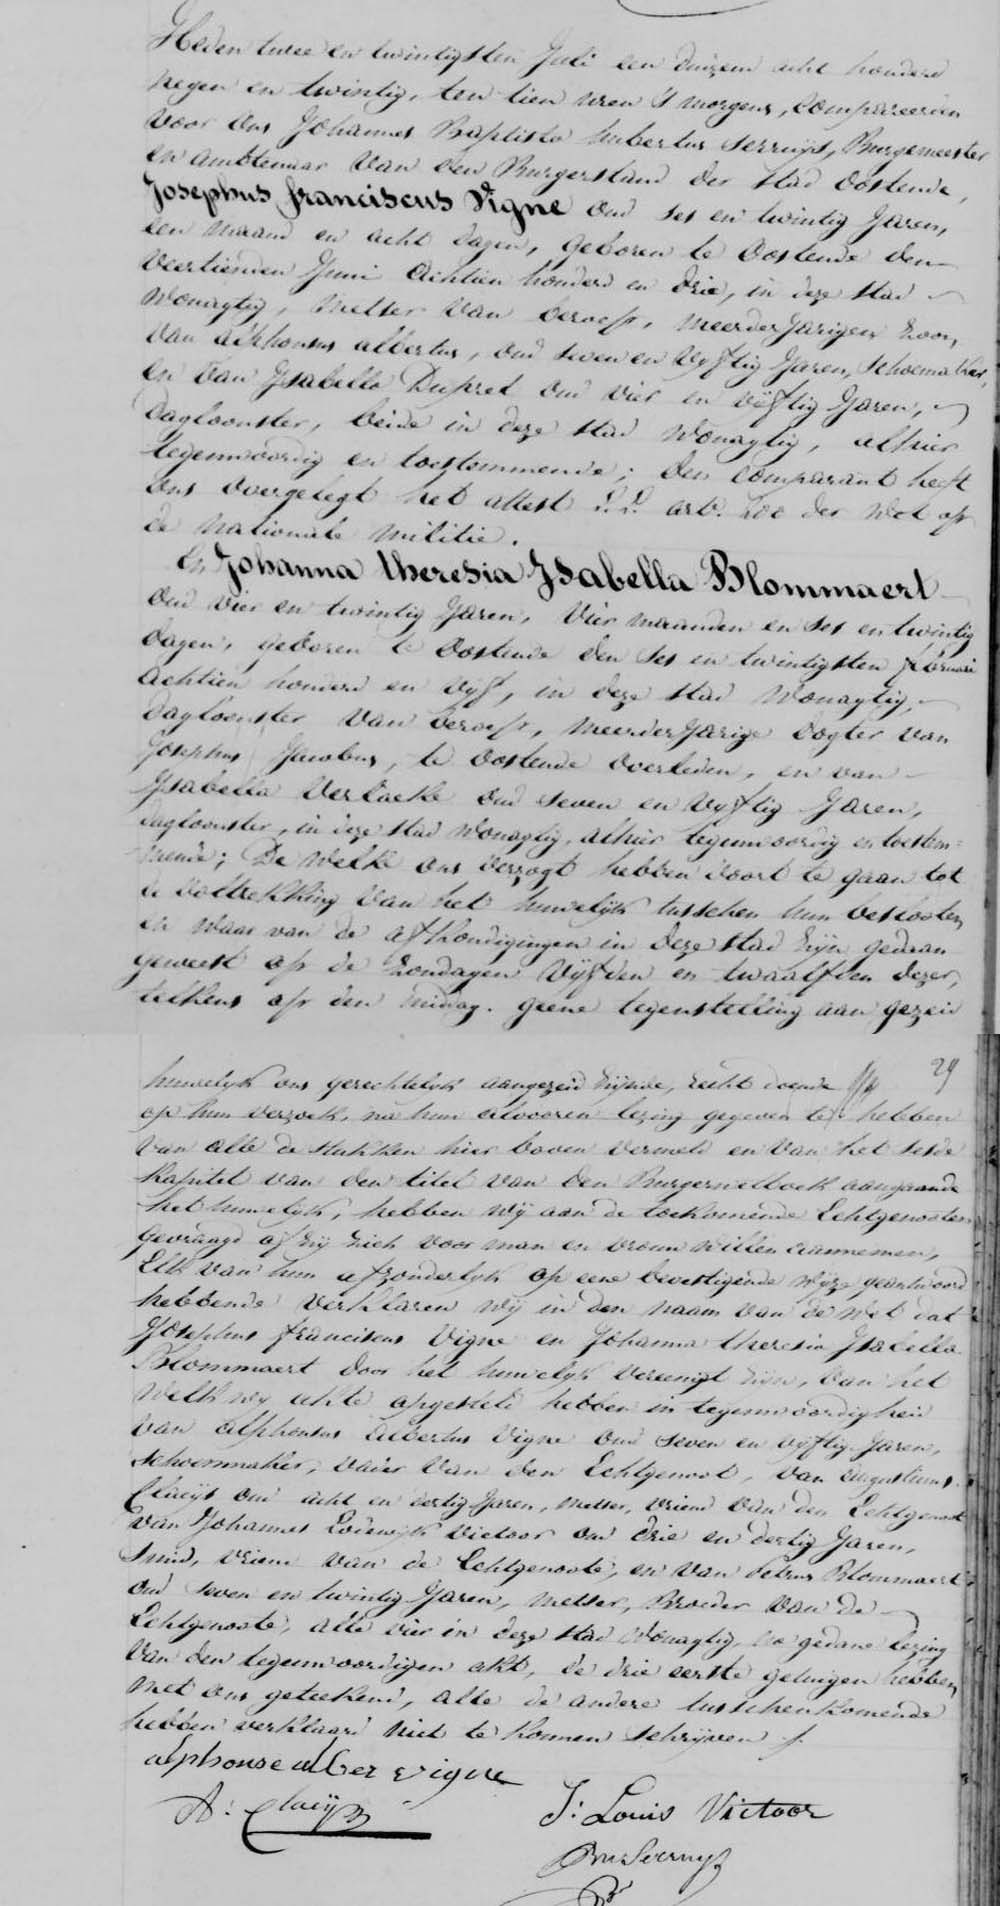 Heden twee en twintigsten Juli een duizend acht honderd
negen en twintig, ten tien uren 's morgens, Compareerden
voor ons Johannes Baptista hubertus Serruys, Burgemeester
en ambtenaar van den Burgerstand der stad Oostende,
Josephus franciscus Vigne oud ses en twintig Jaren,
een maand en acht dagen, geboren te Oostende den
veertienden Juni Achtien honderd en drie, in deze stad
wonagtig, Metser van beroep, meerderjarigen zoon,
van alphonsus albertus, oud seven en vyftig Jaren, Schoenmaker,
en van Ysabella Dupret oud vier en vyftig Jaren,
dagloonster, beide in deze stad wonagtig, alhier
tegenwoordig en toestemmende; den comparant heeft
ons overgelegt het attest L.L. art. 200 der wet op
de nationale militie.
En Johanna theresia Ysabella Blommaert
oud vier en twintig Jaren, vier maanden en ses en twintig
dagen, geboren te Oostende den ses en twintigsten februari
achtien honderd en vyf, in deze stad wonagtig,
dagloonster van beroep, meerderjarige dogter van
Josephus Jacobus, te Oostende overleden, en van
Ysabella Verlaeke oud seven en vyftig Jaren,
dagloonster, in deze stad wonagtig, alhier tegenwoordig en toestem=
mende; De welke ons verzogt hebben voort te gaan tot
de voltrekking van het huwelyk tusschen hun besloten,
en waar van de afkondigingen in deze stad zijn gedaan
geweest op de zondagen vyfden en twaalfden dezer,
telkens op den middag. geene tegenstelling aan gezeid
29
huwelyk ons gerechtelyk aangezeid zijnde, recht doende
op hun verzoek, na hun alvooren lezing gegeven te hebben
van alle de stukken hier boven vermeld en van het sesde
kapitel van den titel van den Burgerwetboek aangaande
het huwelyk, hebben wy aan de toekomende Echtgenooten
gevraagd of zij zich voor man en vrouw willen aannemen,
Elk van hun afzonderlyk op eene bevestigende wyze geantwoord
hebbende verklaren wy in den naam van de wet dat
Josephus franciscus Vigne en Johanna theresia Ysabella
Blommaert door het huwelyk vereenigt zijn, van het
welk wy akte opgesteld hebben in tegenwoordigheid
van alphonsus albertus Vigne oud seven en vyftig Jaren,
schoenmaker, vader van den Echtgenoot, van augustinus
Claeys oud acht en dertig Jaren, metser, vriend van den Echtgenoot
van Johannes Lodewyk Victoor oud drie en dertig Jaren,
smid, vriend van de Echtgenoote, en van Petrus Blommaert
oud seven en twintig Jaren, metser, Broeder van de
Echtgenoote, alle vier in deze stad wonagtig, na gedane lezing
van den tegenwoordigen akt, de drie eerste getuigen hebben
met ons geteekend, alle de andere tusschenkomende
hebben verklaard niet te konnen schrijven /.
alphonse alber vigne
A: Claeys
J: Louis Victoor